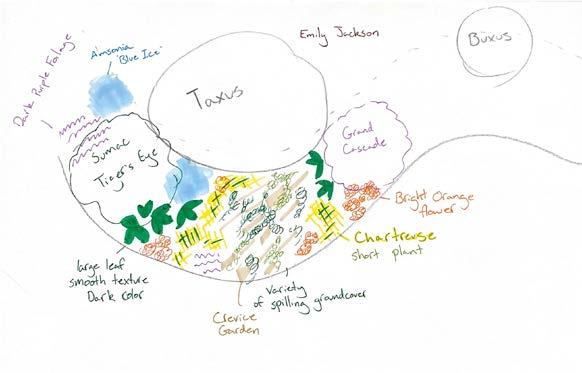 Emily Jackson
Buxus
Amsonia
'Blue Ice'
Dark Purple Foliage
Taxus
Sumac
Tiger's Eye
Grand
Cascade
Bright Orange
flower
Chartreuse
short plant
large leaf
smooth texture
Dark color
Variety
of spilling groundcover
Crevice
Garden